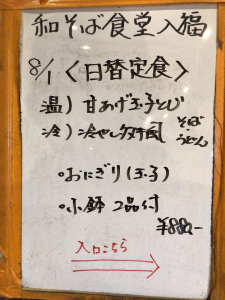 和そば食堂入福
8/1〈日替定食〉
温）甘あげ玉子とじ
冷）冷やし
そば
うどん
・おにぎり（玉子）
・小鉢 2品付
¥880.-
入口こちら